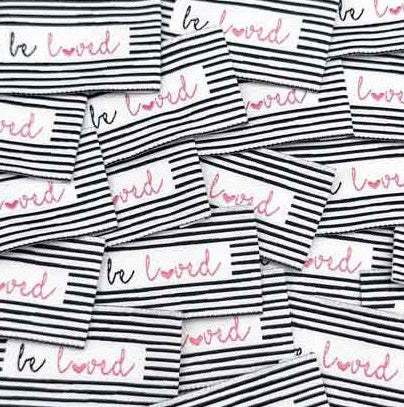 be loved
be
loved
be loved
loved
loved
loved
loved
loved
loved
loved
be loved
loved
loved
loved
be loved
loved